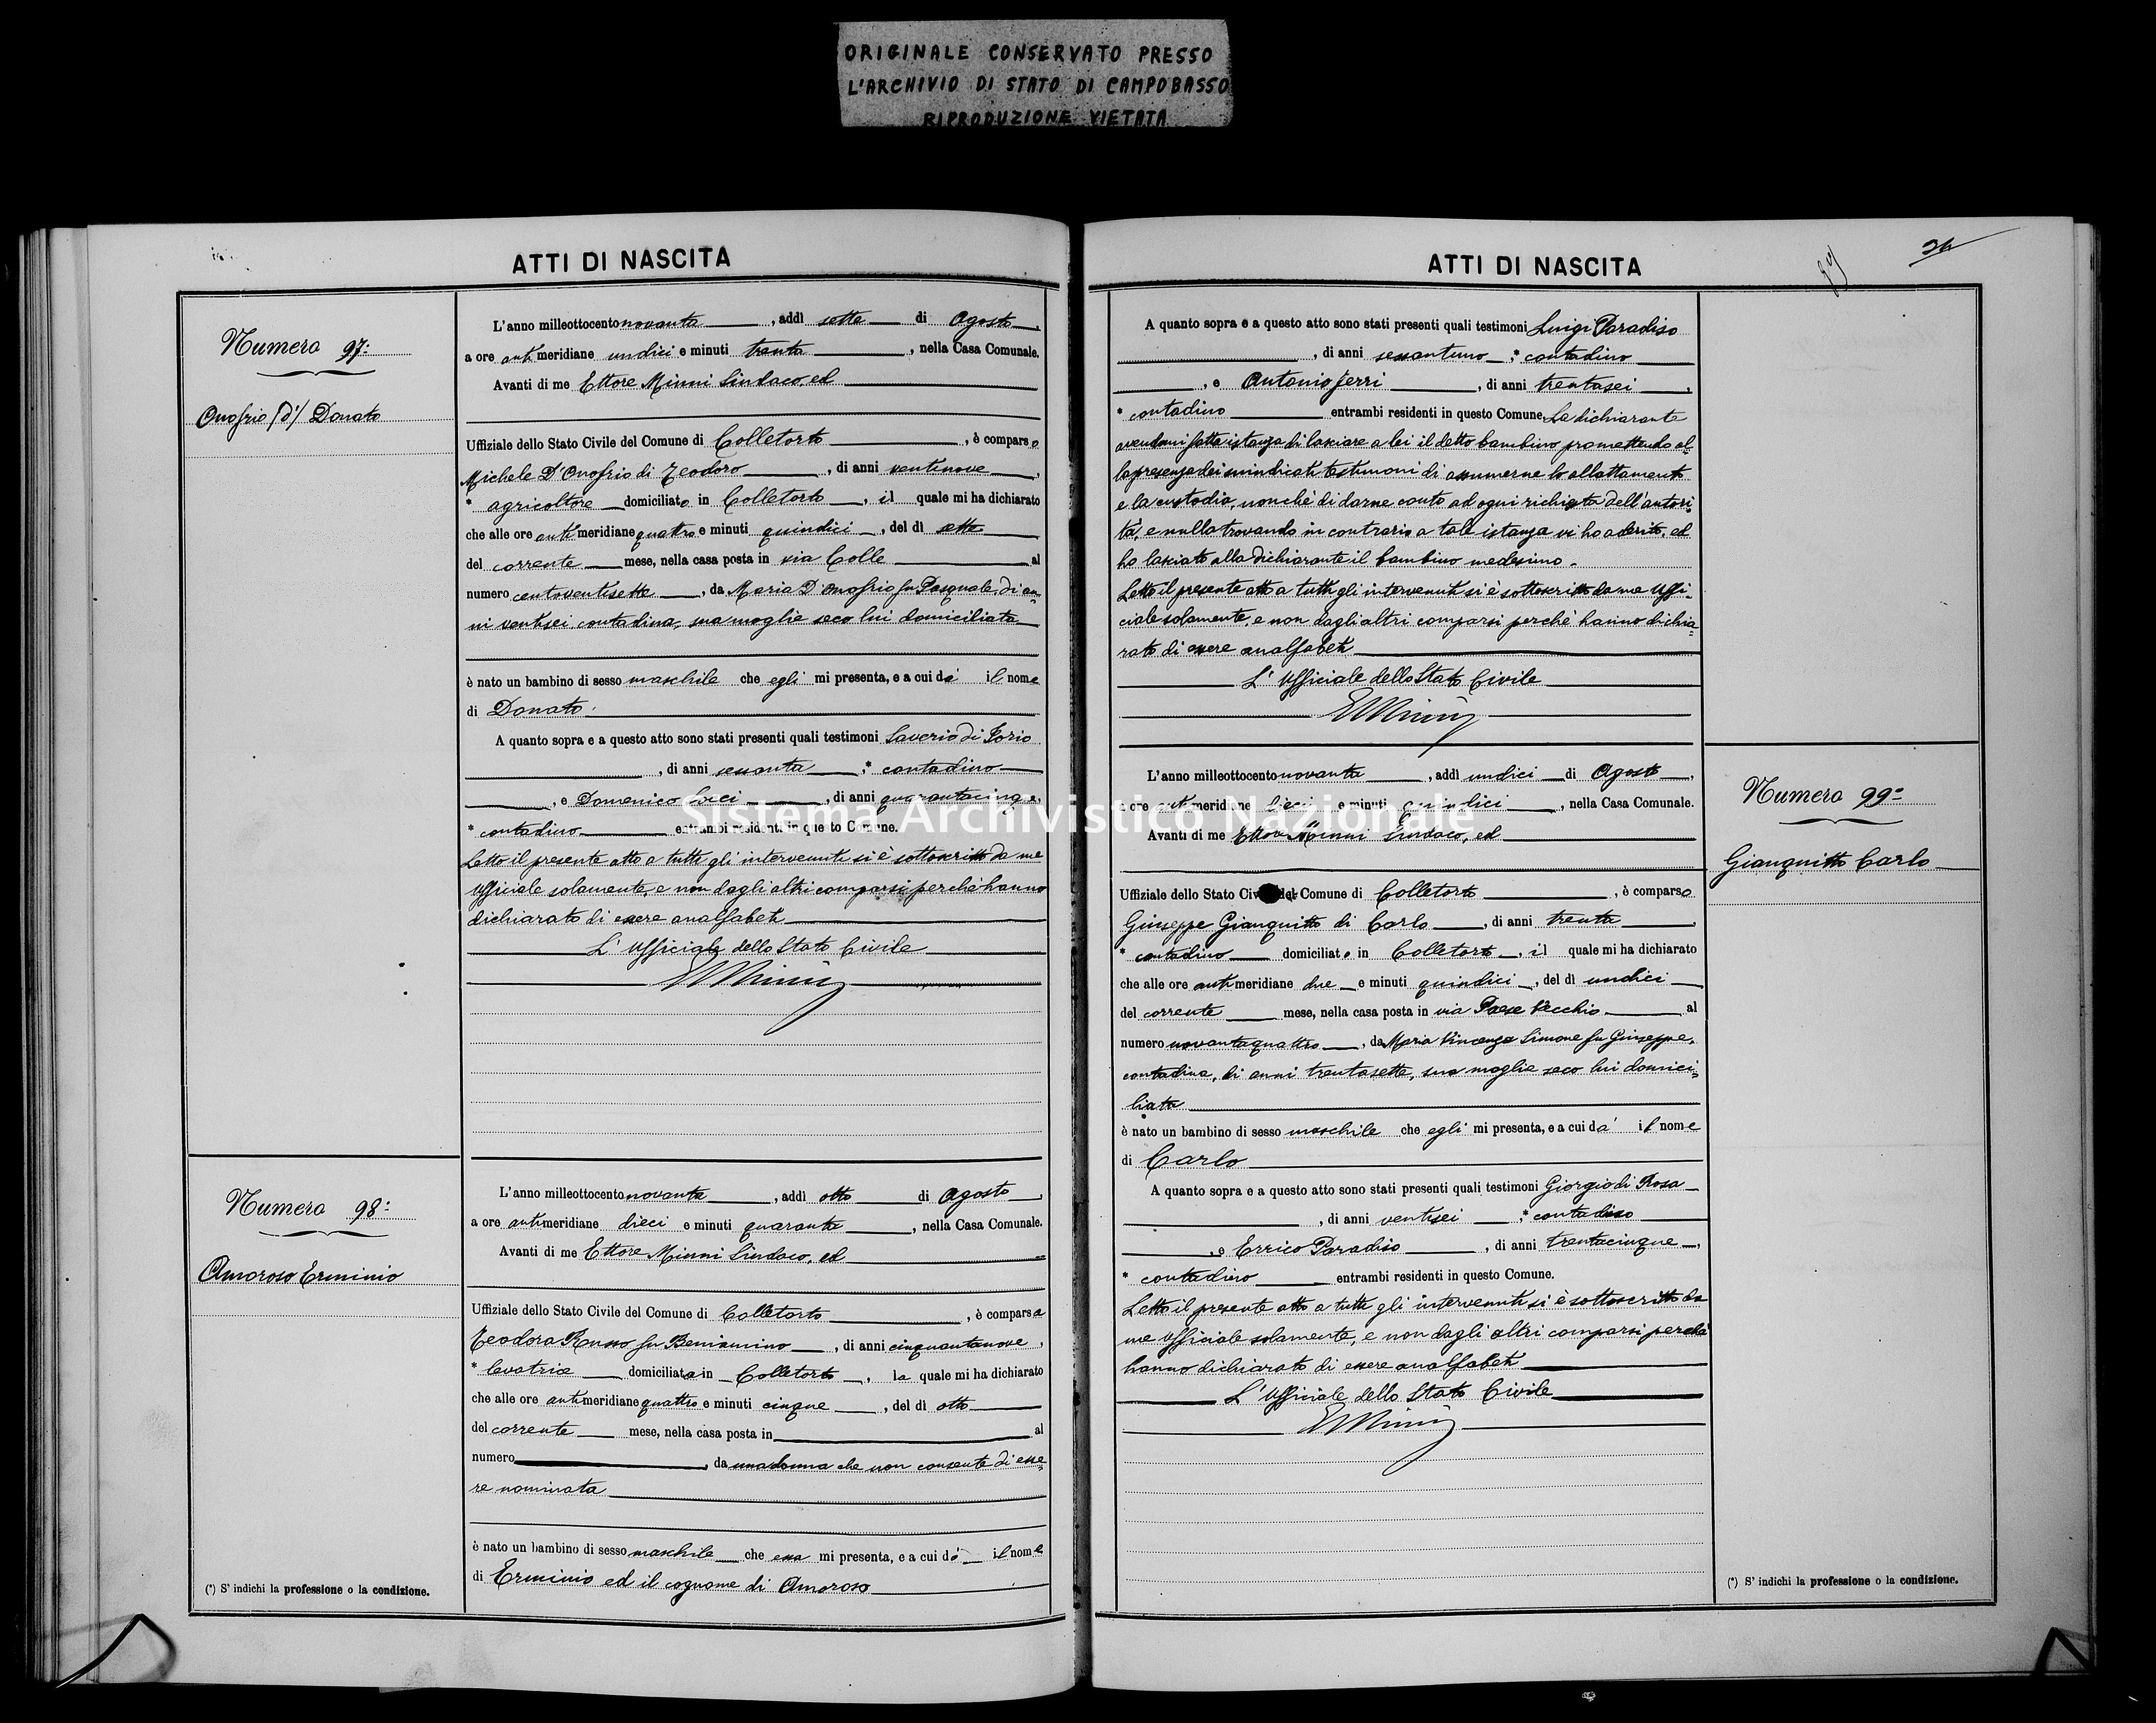 ORIGINALE CONSERVATO PRESSO
L'ARCHIVIO DI STATO DI CAMPOBASSO
RIPRODUZIONE VIETATA
ATTI DI NASCITA
Numero 97:
Onofrio (d') Donato
L'anno milleottocentonovanta, addì sette di Agosto,
a ore antimeridiane undici e minuti trenta, nella Casa Comunale.
Avanti di me Ettore Minni Sindaco, ed
Uffiziale dello Stato Civile del Comune di Colletorto, è comparso
Michele D'Onofrio di Teodoro, di anni ventinove,
* agricoltore domiciliato in Colletorto, il quale mi ha dichiarato
che alle ore antimeridiane quattro e minuti quindici, del dì sette
del corrente mese, nella casa posta in via Colle al
numero centoventisette, da Maria D'Onofrio fu Pasquale, di an-
ni ventisei, contadina, sua moglie seco lui domiciliata
è nato un bambino di sesso maschile che egli mi presenta, e a cui dà il nome
di Donato.
A quanto sopra e a questo atto sono stati presenti quali testimoni Saverio di Iorio
, di anni sessanta, * contadino
, e Domenico, di anni quarantacinque,
* contadino entrambi residenti in questo Comune.
Letto il presente atto a tutti gli intervenuti si è sottoscritto da me
Ufficiale solamente, e non dagli altri comparsi perchè hanno
dichiarato di essere analfabeti
L'Ufficiale dello Stato Civile
EMinni
Numero 98:
Amoroso Erminio
L'anno milleottocentonovanta, addì otto di Agosto,
a ore antimeridiane dieci e minuti quaranta, nella Casa Comunale.
Avanti di me Ettore Minni Sindaco, ed
Uffiziale dello Stato Civile del Comune di Colletorto, è comparsa
Teodora Russo fu Beniamino, di anni cinquantanove,
* levatrice domiciliata in Colletorto, la quale mi ha dichiarato
che alle ore antimeridiane quattro e minuti cinque, del dì otto
del corrente mese, nella casa posta in al
numero, da una donna che non consente di esse-
re nominata
è nato un bambino di sesso maschile che essa mi presenta, e a cui dà il nome
di Erminio ed il cognome di Amoroso
(*) S'indichi la professione o la condizione.
ATTI DI NASCITA
A quanto sopra e a questo atto sono stati presenti quali testimoni Luigi Paradiso
, di anni sessantuno, * contadino
, e Antonio Ferri, di anni trentasei,
* contadino entrambi residenti in questo Comune. La dichiarante
avendomi fatta istanza di lasciare a lei il detto bambino promettendo al-
la presenza dei suindicati testimoni di assumerne lo allattamento
e la custodia, nonchè di darne conto ad ogni richiesta dell'autori-
tà, e nulla trovando in contrario a tale istanza vi ho aderito, ed
ho lasciato alla dichiarante il bambino medesimo.
Letto il presente atto a tutti gli intervenuti si è sottoscritto da me Uffi-
ciale solamente, e non dagli altri comparsi perchè hanno dichia-
rato di essere analfabeti
L'Ufficiale dello Stato Civile
EMinni
L'anno milleottocentonovanta, addì undici di Agosto,
a ore antimeridiane dieci e minuti quindici, nella Casa Comunale.
Avanti di me Ettore Minni Sindaco, ed
Uffiziale dello Stato Civile del Comune di Colletorto, è comparso
Giuseppe Gianquitto di Carlo, di anni trenta,
* contadino domiciliato in Colletorto, il quale mi ha dichiarato
che alle ore antimeridiane due e minuti quindici, del dì undici
del corrente mese, nella casa posta in via Paese Vecchio al
numero novantaquattro, da Maria Vincenza Simone fu Giuseppe,
contadina, di anni trentasette, sua moglie seco lui domici-
liata
è nato un bambino di sesso maschile che egli mi presenta, e a cui dà il nome
di Carlo
A quanto sopra e a questo atto sono stati presenti quali testimoni Giorgio di Rosa
, di anni ventisei, * contadino
, e Errico Paradiso, di anni trentacinque,
* contadino entrambi residenti in questo Comune.
Letto il presente atto a tutti gli intervenuti si è sottoscritto da
me Ufficiale solamente, e non dagli altri comparsi perchè
hanno dichiarato di essere analfabeti
L'Ufficiale dello Stato Civile
EMinni
Numero 99=
Gianquitto Carlo
(*) S'indichi la professione o la condizione.
Sistema Archivistico Nazionale